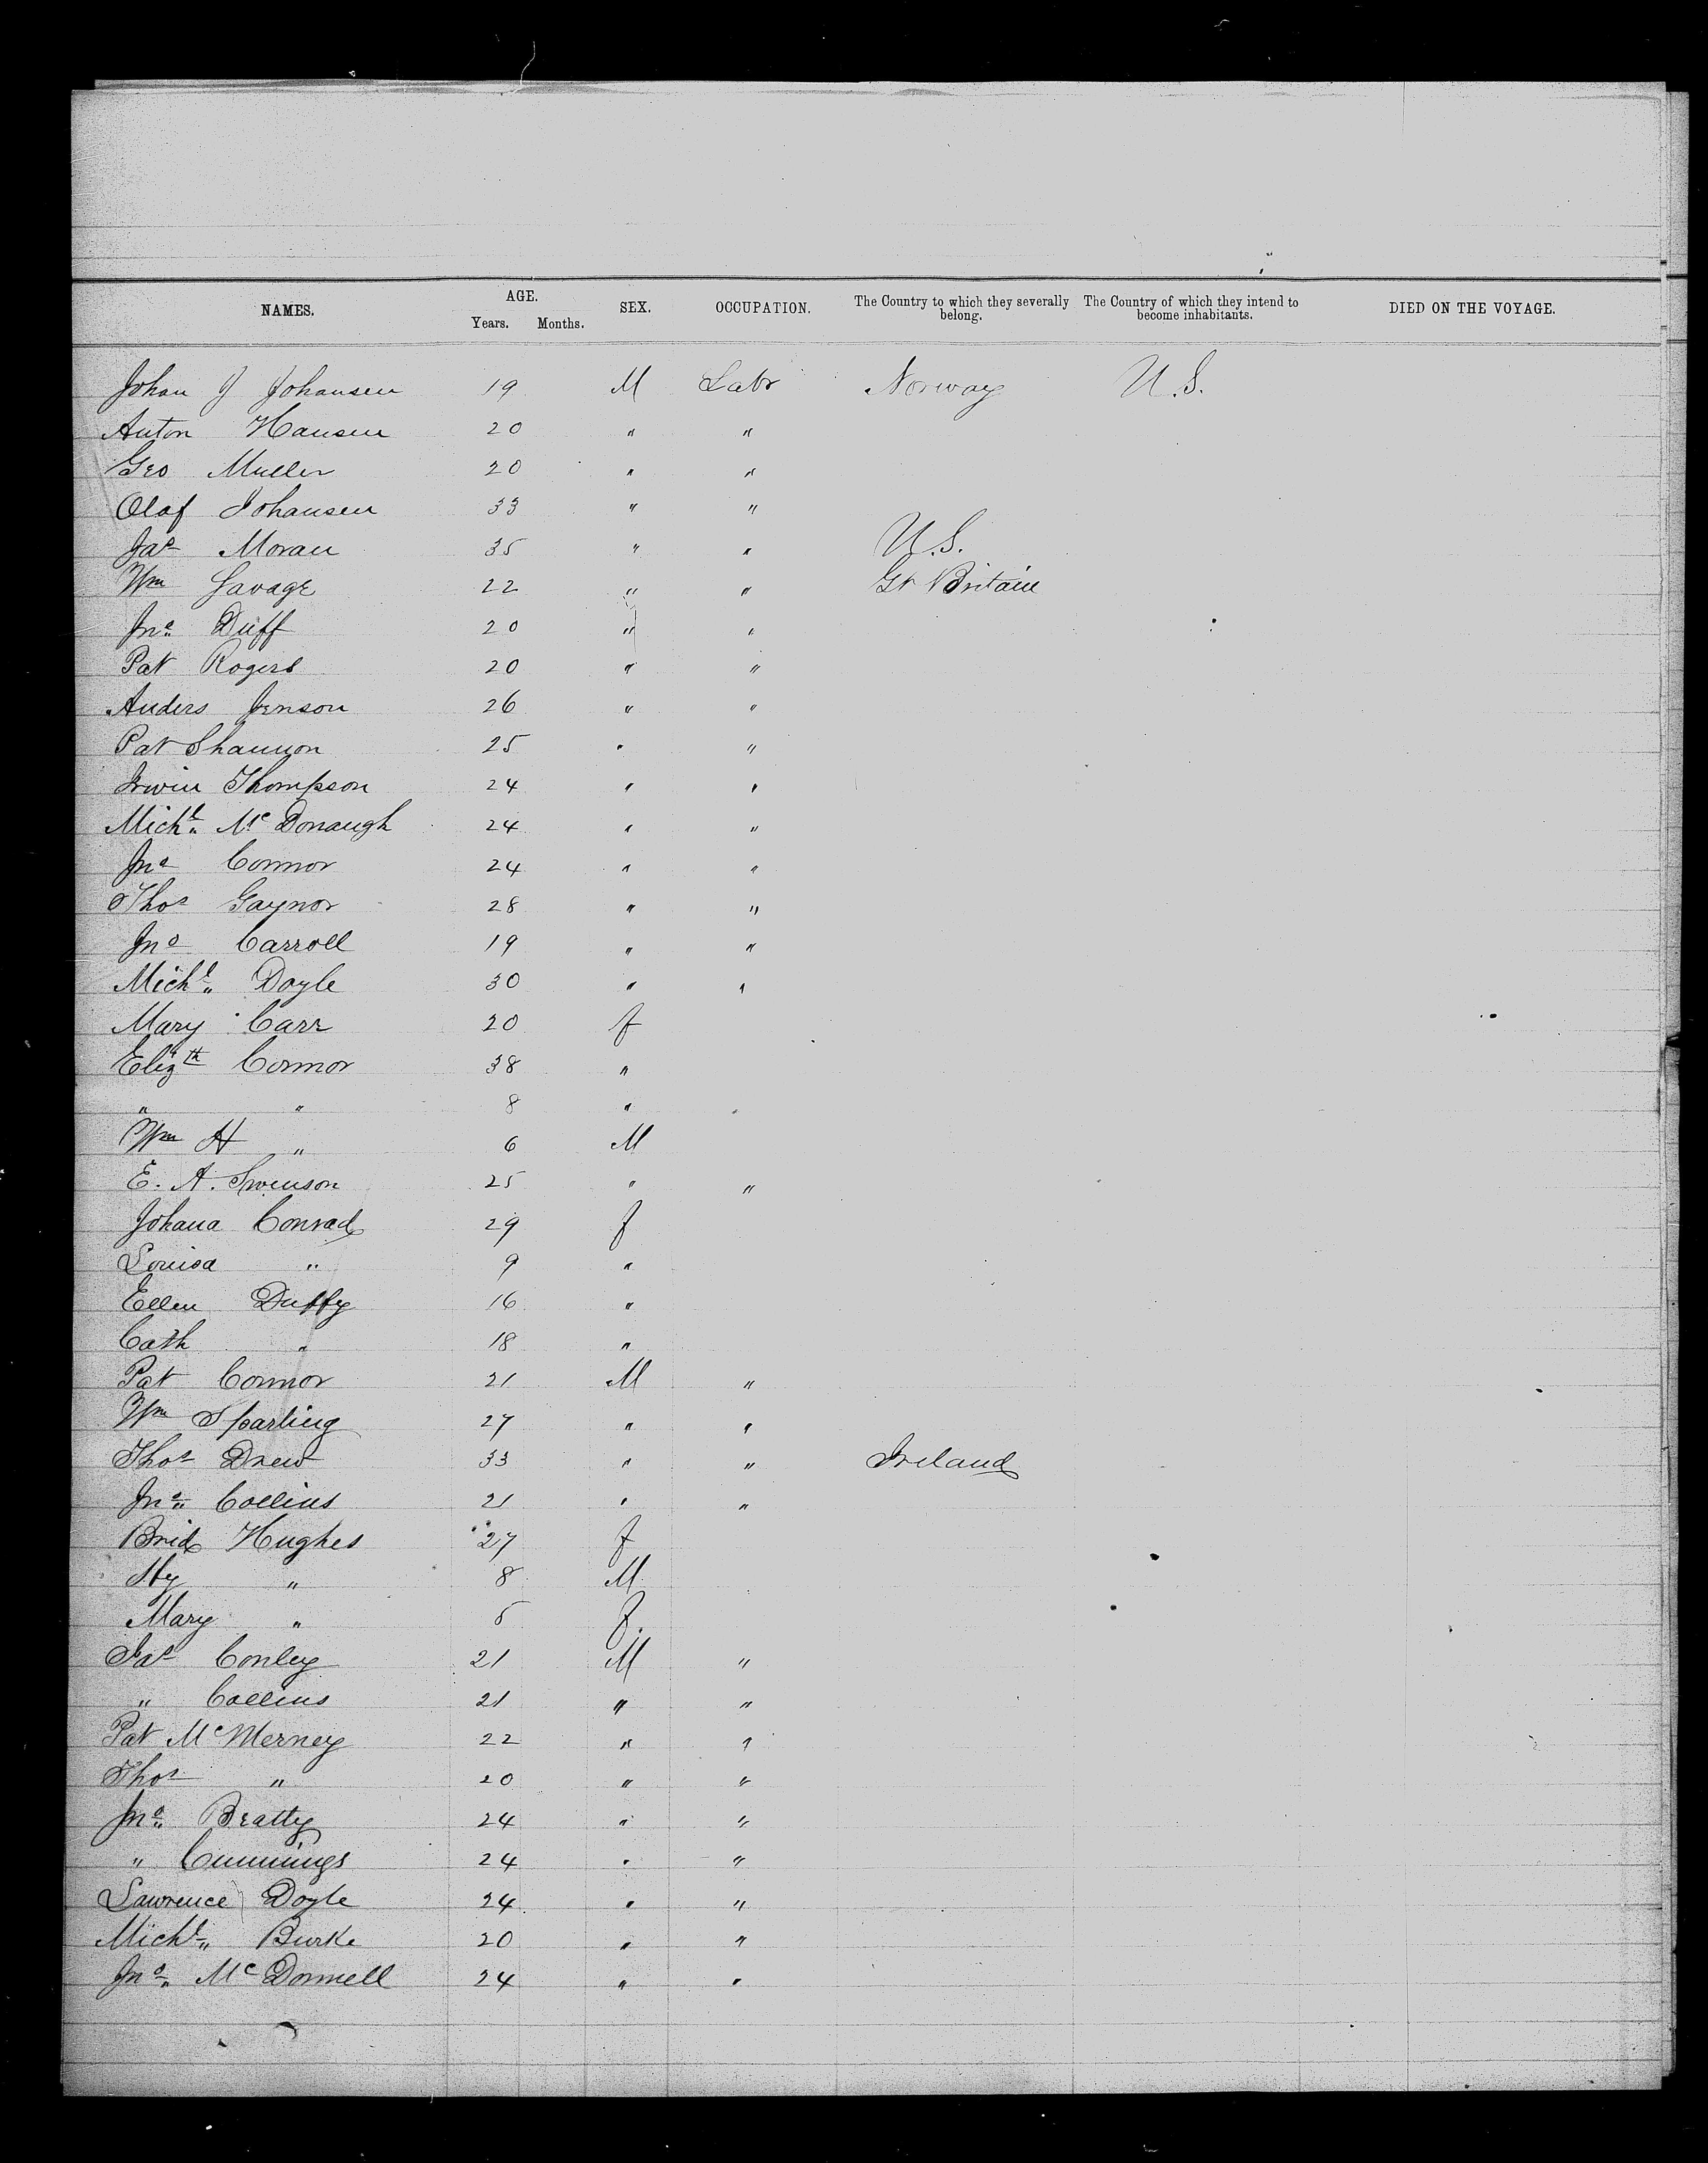 NAMES. AGE. Years. Months. SEX. OCCUPATION. The Country to which they severally belong. The Country of which they intend to become inhabitants. DIED ON THE VOYAGE.
Johan J Johansen 19 M Labr Norway U.S.
Anton Hansen 20 " "
Geo Muller 20 " "
Olaf Johansen 33 " "
Jas Moran 35 " " U.S.
Wm Savage 22 " " Gt Britain
Jno Duff 20 " "
Pat Rogers 20 " "
Anders Jenson 26 " "
Pat Shannon 25 " "
Irwin Thompson 24 " "
Michl McDonaugh 24 " "
Jno Connor 24 " "
Thos Gaynor 28 " "
Jno Carroll 19 " "
Michl Doyle 30 " "
Mary Carr 20 f
Elizth Connor 38 "
" " 8 "
Wm H " 6 M
E. A. Swenson 25 " "
Johana Conrad 29 f
Louisa " 9 "
Ellen Duffy 16 "
Cath " 18 "
Pat Connor 21 M "
Wm Sparling 27 " "
Thos Drew 33 " " Ireland
Jno Collins 21 " "
Brid Hughes 27 f
Hy " 8 M
Mary " 5 f
Jas Conley 21 M "
" Collins 21 " "
Pat McMerney 22 " "
Thos " 20 " "
Jno Beatty 24 " "
" Cummings 24 " "
Lawrence Doyle 24 " "
Michl Burke 20 " "
Jno McDonnell 24 " "